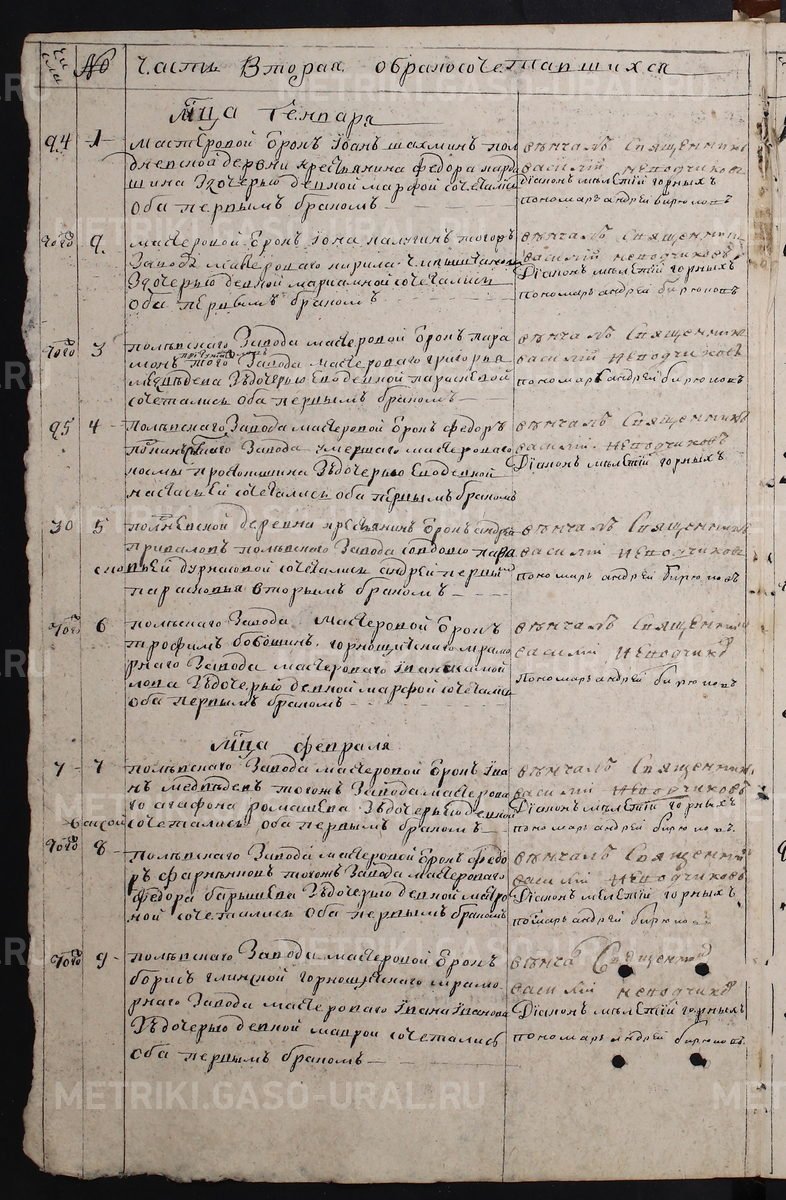 Числа № Часть Вторая о бракосочетавшихся
Мца Генваря
24 1 мастеровой Ѳронъ Іоанъ шахминъ пол
дневской деревни крестьянина федора
здочерью девкой марфой сочетались
оба первымъ бракомъ
вѣнчалъ Священникъ
василій неподчиковъ
Діаконъ мѣлетій горныхъ
пономарь андрей бирюковъ
того 2 мастеровой Іона тогожъ
Завода мастероваго кирила
Здочерью девкой мариамной сочетались
оба первымъ бракомъ
вѣнчалъ Священникъ
василій неподчиковъ
Діаконъ мѣлетій горныхъ
пономарь андрей бирюковъ
того 3 полѣвскаго Завода мастеровой пара
монъ того Завода мастероваго григорья
медвѣдева Здочерью Ево девкой параскевой
сочетались оба первымъ бракомъ
вѣнчалъ Священникъ
василій неподчиковъ
пономарь андрей бирюковъ
25 4 полѣвскаго Завода мастеровой федоръ
Завода умершаго мастероваго
космы Здочерью Ево девкой
настасьей сочетались оба первымъ бракомъ
вѣнчалъ Священникъ
василій неподчиковъ
Діаконъ мѣлетій горныхъ
30 5 деревни крестьянинъ андрей
приваловъ полѣвскаго Завода совдовою пара
сковьей бурнасовой сочетались андрей первый
парасковья вторымъ бракомъ
вѣнчалъ Священникъ
василій неподчиковъ
пономарь андрей бирюковъ
того 6 полѣвскаго Завода мастеровой
трофимъ горнощитскаго мрамо
рнаго Завода мастероваго Івана
Здочерью девкой марфой сочетались
оба первымъ бракомъ
вѣнчалъ Священникъ
василій неподчиковъ
пономарь андрей бирюковъ
Мца февраля
7 7 полѣвскаго Завода мастеровой Іва
нъ медвѣдевъ тогожъ Завода мастерова
го агафона ромашева Здочерью девкой
сочетались оба первымъ бракомъ
вѣнчалъ Священникъ
василій неподчиковъ
Діаконъ мѣлетій горныхъ
пономарь андрей бирюковъ
того 8 полѣвскаго Завода мастеровой федо
ръ тогожъ Завода мастероваго
федора барышева Здочерью девкой матро
ной сочетались оба первымъ бракомъ
вѣнчалъ Священникъ
василій неподчиковъ
Діаконъ мѣлетій горныхъ
пономарь андрей бирюковъ
того 9 полѣвскаго Завода мастеровой
борисъ глинской горнощитскаго мрамо
рнаго Завода мастероваго Івана Іванова
Здочерью девкой маврой сочетались
оба первымъ бракомъ
вѣнчалъ Священникъ
василій неподчиковъ
Діаконъ мѣлетій горныхъ
пономарь андрей бирюковъ
METRIKI.GASO-URAL.RU